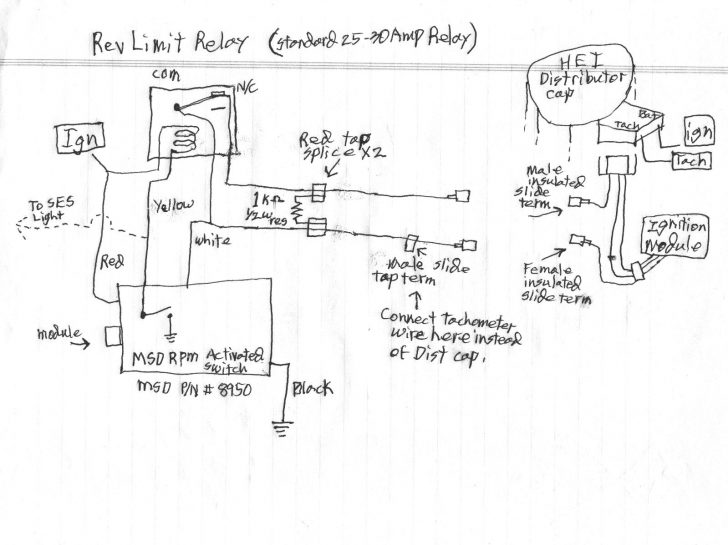 Rev Limit Relay (standard 25-30 Amp Relay)
com
N/C
Ign
Red tap
splice x2
To SES
Light
Yellow
1KΩ
1/2W res
white
Red
Male slide
tap term
Connect Tachometer
wire here instead
of Dist cap.
module
MSD Rpm Activated
switch
MSD P/N # 8950
Black
HEI
Distributor
cap
Bat
Tach
ign
Tach
Male
insulated
slide
term
Ignition
Module
Female
insulated
slide term